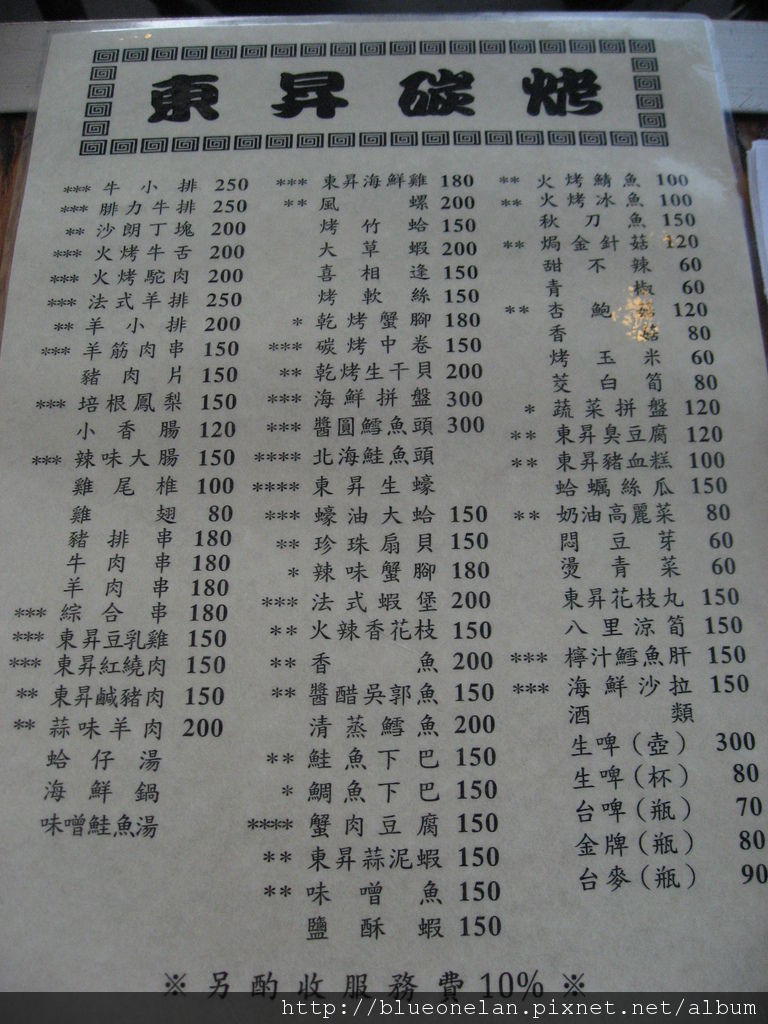 東昇碳烤
*** 牛小排 250
*** 腓力牛排 250
** 沙朗丁塊 200
*** 火烤牛舌 200
*** 火烤駝肉 200
*** 法式羊排 250
** 羊小排 200
*** 羊筋肉串 150
豬肉片 150
*** 培根鳳梨 150
小香腸 120
*** 辣味大腸 150
雞尾椎 100
雞翅 80
豬排串 180
牛肉串 180
羊肉串 180
*** 綜合串 180
*** 東昇豆乳雞 150
*** 東昇紅繞肉 150
** 東昇鹹豬肉 150
** 蒜味羊肉 200
蛤仔湯
海鮮鍋
味噌鮭魚湯
*** 東昇海鮮雞 180
** 風螺 200
烤竹蛤 150
大草蝦 200
喜相逢 150
烤軟絲 150
* 乾烤蟹腳 180
*** 碳烤中卷 150
** 乾烤生干貝 200
*** 海鮮拼盤 300
*** 醬圓鱈魚頭 300
**** 北海鮭魚頭
**** 東昇生蠔
*** 蠔油大蛤 150
** 珍珠扇貝 150
* 辣味蟹腳 180
*** 法式蝦堡 200
** 火辣香花枝 150
** 香魚 200
** 醬醋吳郭魚 150
清蒸鱈魚 200
** 鮭魚下巴 150
* 鯛魚下巴 150
**** 蟹肉豆腐 150
** 東昇蒜泥蝦 150
** 味噌魚 150
鹽酥蝦 150
** 火烤鯖魚 100
** 火烤冰魚 100
秋刀魚 150
** 焗金針菇 120
甜不辣 60
青椒 60
** 杏鮑菇 120
香菇 80
烤玉米 60
茭白筍 80
* 蔬菜拼盤 120
** 東昇臭豆腐 120
** 東昇豬血糕 100
蛤蠣絲瓜 150
** 奶油高麗菜 80
悶豆芽 60
燙青菜 60
東昇花枝丸 150
八里涼筍 150
*** 檸汁鱈魚肝 150
*** 海鮮沙拉 150
酒類
生啤(壺) 300
生啤(杯) 80
台啤(瓶) 70
金牌(瓶) 80
台麥(瓶) 90
※另酌收服務費10%※
http://blueonelan.pixnet.net/album